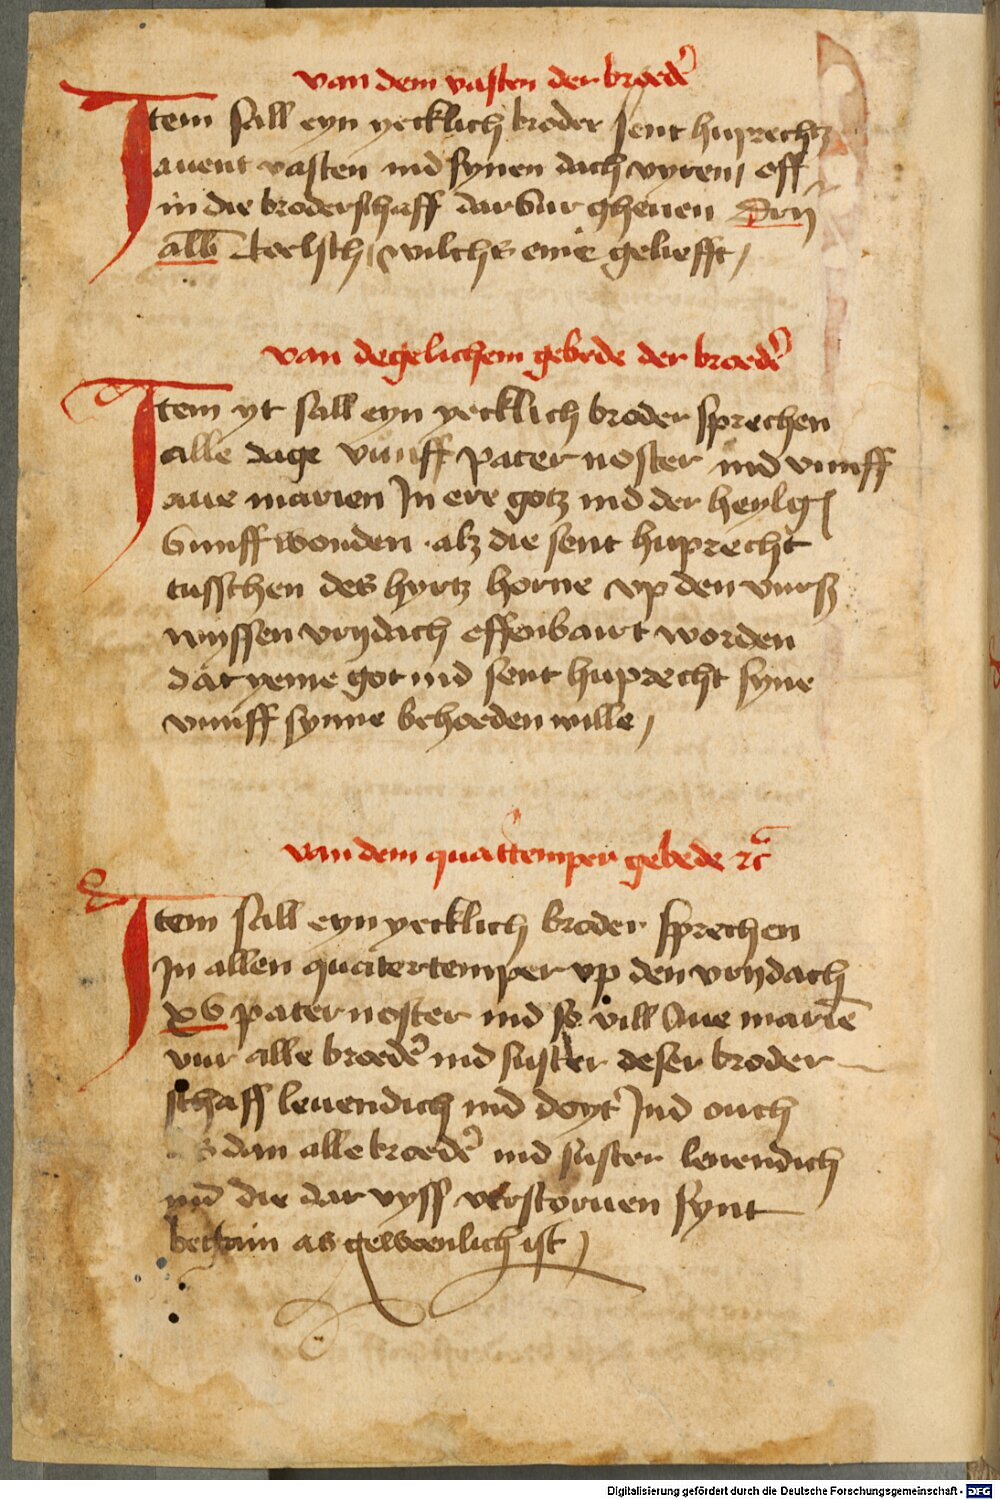 van dem vasten der broed'
Item sall eyn yecklich broder sent huprechtz
auent vasten ind synen dach vyren, off
in die broderschaff dar vur gheuen dry
alb koelsch, wilchs eme geliefft,
van degelichem gebede der broed'
Item yt sall eyn yecklich broder sprechen
alle dage vunff pater noster ind vunff
aue marien In ere gotz ind der heylig
vunff wonden alz die sent huprecht
tusschen des hyrtz horne vp den vurß
wyssen vrydach offenbairt worden
dat yeme got ind sent huprecht syne
vunff synne behoeden wille,
van dem quattemper gebede etc
Item sall eyn yecklich broder sprechen
In allen quatertemper vp den vrydach
xv pater noster ind so vill Aue marie
vur alle broed' ind suster deser broder
schaff leuendich ind doyt Ind ouch
dan alle broed' ind suster leuendich
ind die dar vyss verstoruen synt
as gewoenlich ist,
Digitalisierung gefördert durch die Deutsche Forschungsgemeinschaft - DFG